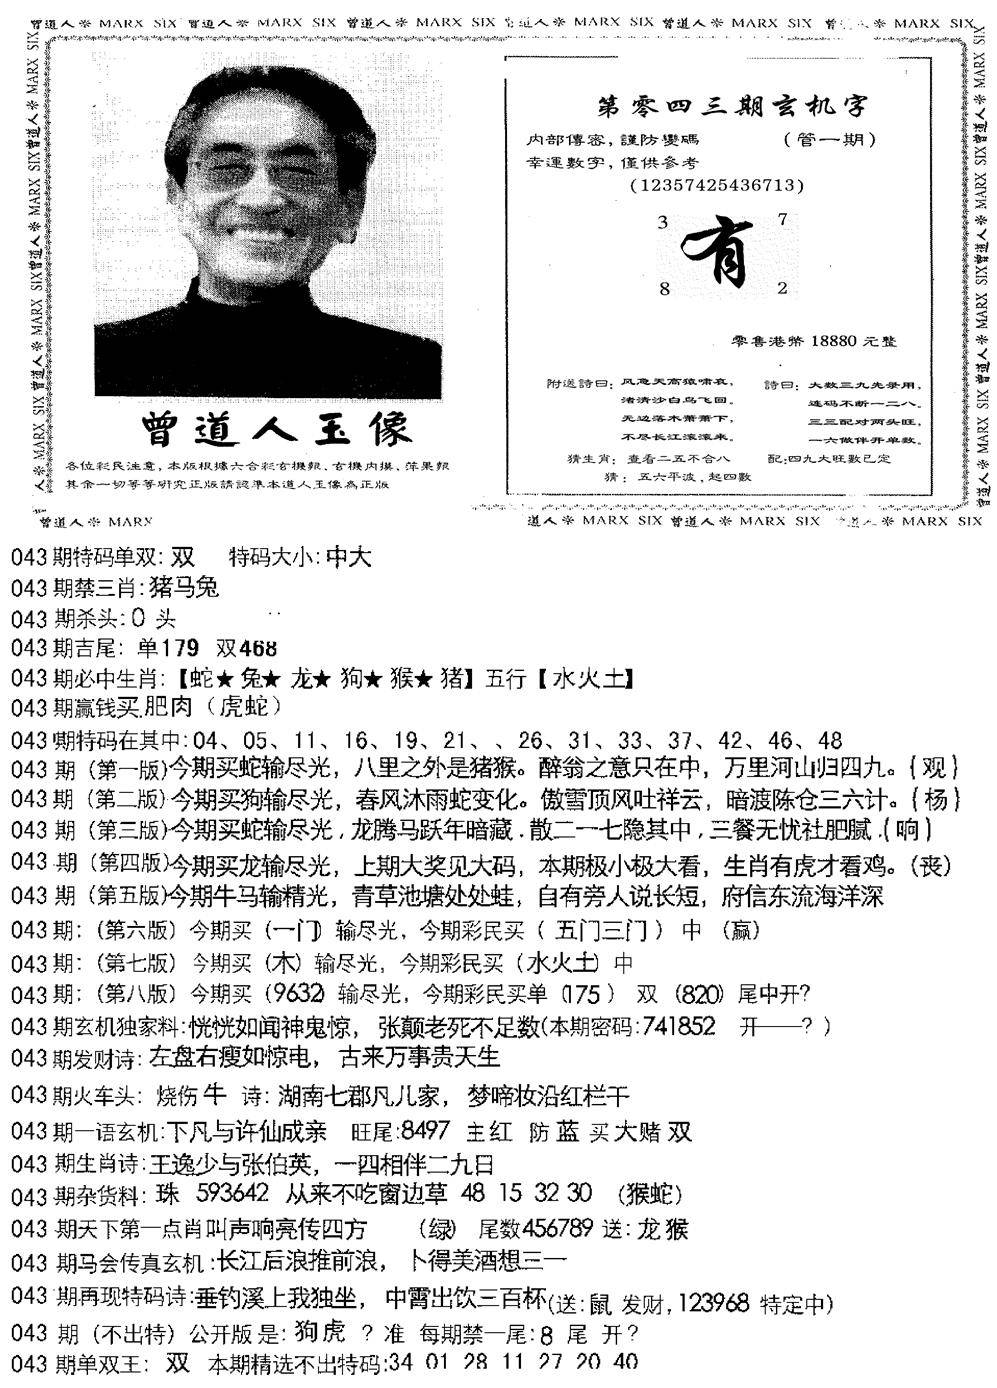 曾道人※ MARX SIX 曾道人※ MARX SIX 曾道人※ MARX SIX 曾道人※ MARX SIX 曾道人※ MARX SIX 曾道人※ MARX SIX
第零四三期玄机字
内部傳密，謹防變碼 （管一期）
幸運數字，僅供參考
(12357425436713)
3 7
有
8 2
零售港幣 18880 元整
附送詩曰：风急天高猿啸哀，
渚清沙白鸟飞回。
无边落木萧萧下，
不尽长江滚滚来。
詩曰：大数三九先录用，
连码不断一二八。
三三配对两头旺，
一六做伴开单数。
猜生肖：查看二五不合八 配:四九大旺數已定
猜：五六平波，起四數
曾道人玉像
各位彩民注意，本版根據六合彩玄機報、玄機内摸、萍果報
其余一切等等研究正版請認準本道人玉像為正版
曾道人※ MARX
道人※ MARX SIX 曾道人※ MARX SIX 曾道人※ MARX SIX
043期特码单双：双 特码大小：中大
043期禁三肖：猪马兔
043期杀头：0 头
043期吉尾：单179 双468
043期必中生肖：【蛇★兔★龙★狗★猴★猪】五行【水火土】
043期赢钱买肥肉（虎蛇）
043期特码在其中：04、05、11、16、19、21、、26、31、33、37、42、46、48
043期（第一版）今期买蛇输尽光，八里之外是猪猴。醉翁之意只在中，万里河山归四九。{观}
043期（第二版）今期买狗输尽光，春风沐雨蛇变化。傲雪顶风吐祥云，暗渡陈仓三六计。{杨}
043期（第三版）今期买蛇输尽光，龙腾马跃年暗藏．散二一七隐其中，三餐无忧社肥腻．{响}
043期（第四版）今期买龙输尽光，上期大奖见大码，本期极小极大看，生肖有虎才看鸡。（丧）
043期（第五版）今期牛马输精光，青草池塘处处蛙，自有旁人说长短，府信东流海洋深
043期：（第六版）今期买（一门）输尽光，今期彩民买（五门三门）中（赢）
043期：（第七版）今期买（木）输尽光，今期彩民买（水火土）中
043期：（第八版）今期买（9632）输尽光，今期彩民买单（175）双（820）尾中开?
043期玄机独家料：恍恍如闻神鬼惊，张颠老死不足数(本期密码：741852 开——？)
043期发财诗：左盘右瘦如惊电，古来万事贵天生
043期火车头：烧伤牛 诗：湖南七郡凡儿家，梦啼妆沿红栏干
043期一语玄机：下凡与许仙成亲 旺尾：8497 主红 防蓝 买大赌双
043期生肖诗：王逸少与张伯英，一四相伴二九日
043期杂货料：珠 593642 从来不吃窗边草 48 15 32 30 （猴蛇）
043期天下第一点肖叫声响亮传四方 （绿） 尾数456789 送：龙猴
043期马会传真玄机：长江后浪推前浪，卜得美酒想三一
043期再现特码诗：垂钓溪上我独坐，中霄出饮三百杯(送：鼠 发财，123968 特定中)
043期（不出特）公开版是：狗虎 ？准 每期禁一尾：8 尾 开？
043期单双王：双 本期精选不出特码：34 01 28 11 27 20 40